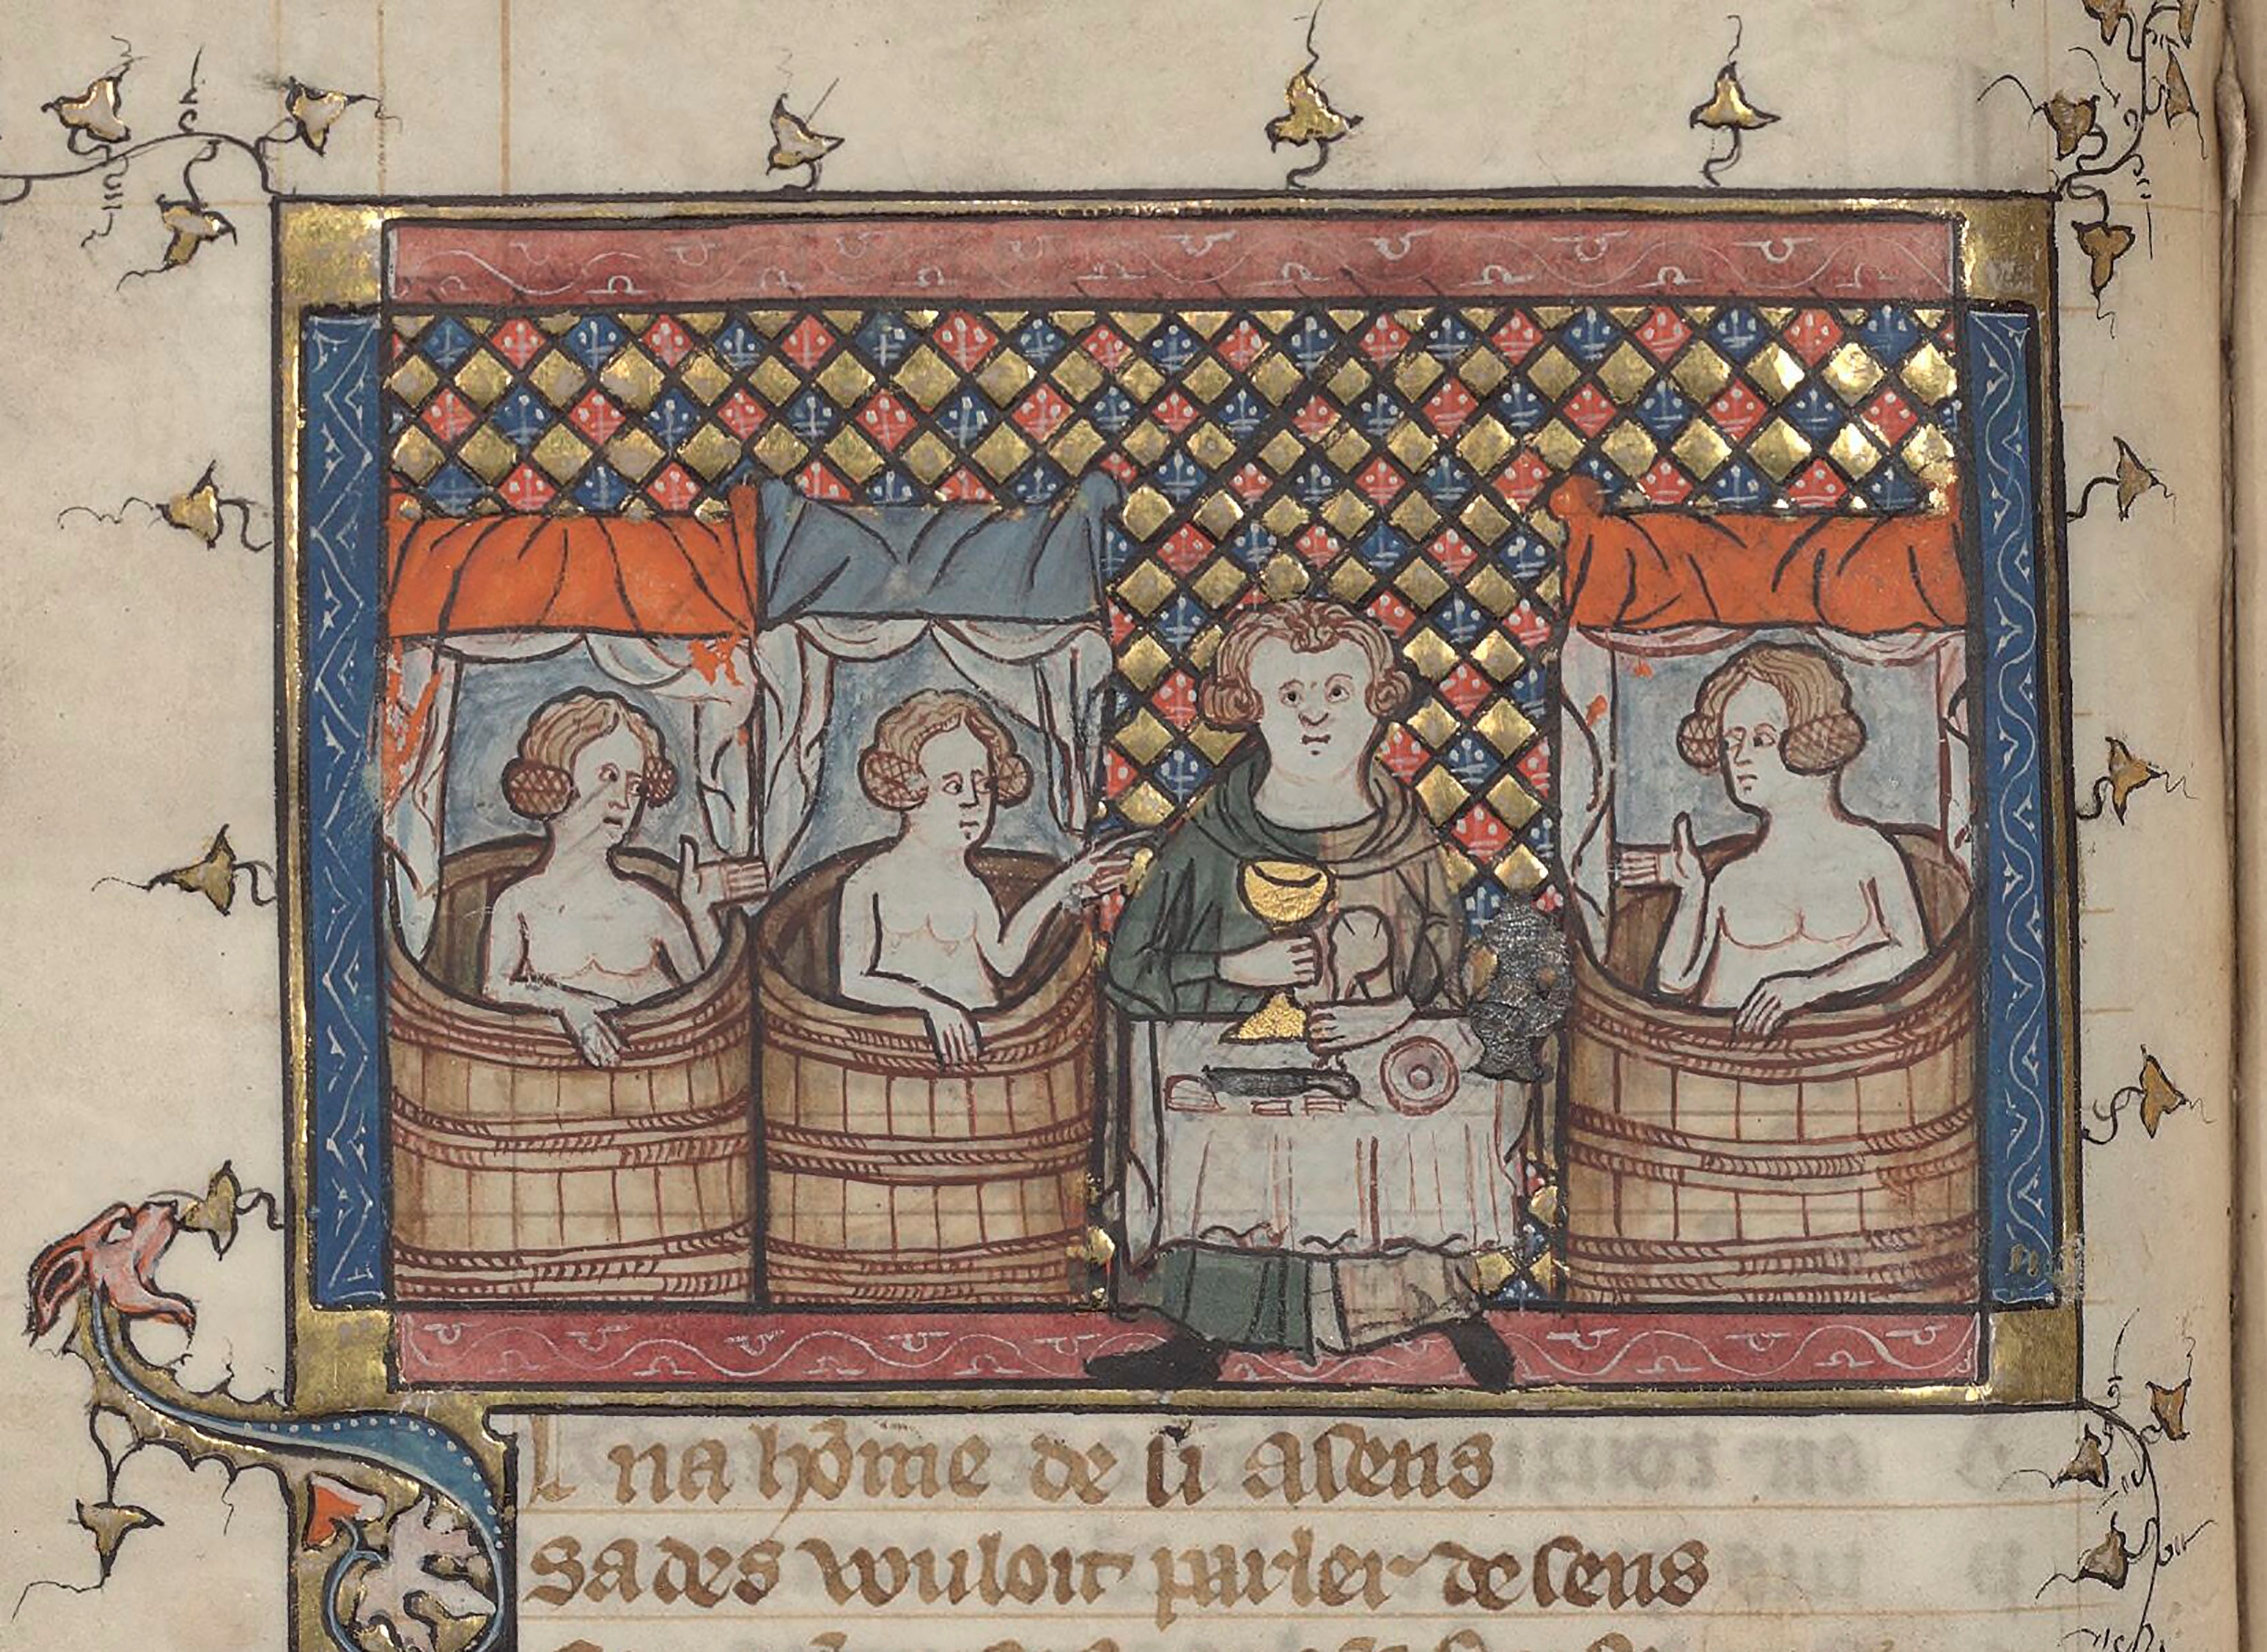 l na hōme de li asens
Sades wuloit parler de sens